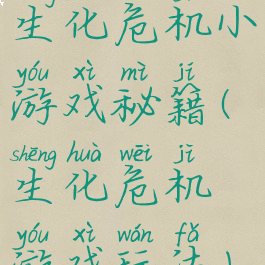 生化危机小
yóu xì mì jí
游戏秘籍(
shēng huà wēi jī
生化危机
yóu xì wán fǎ
游戏玩法)